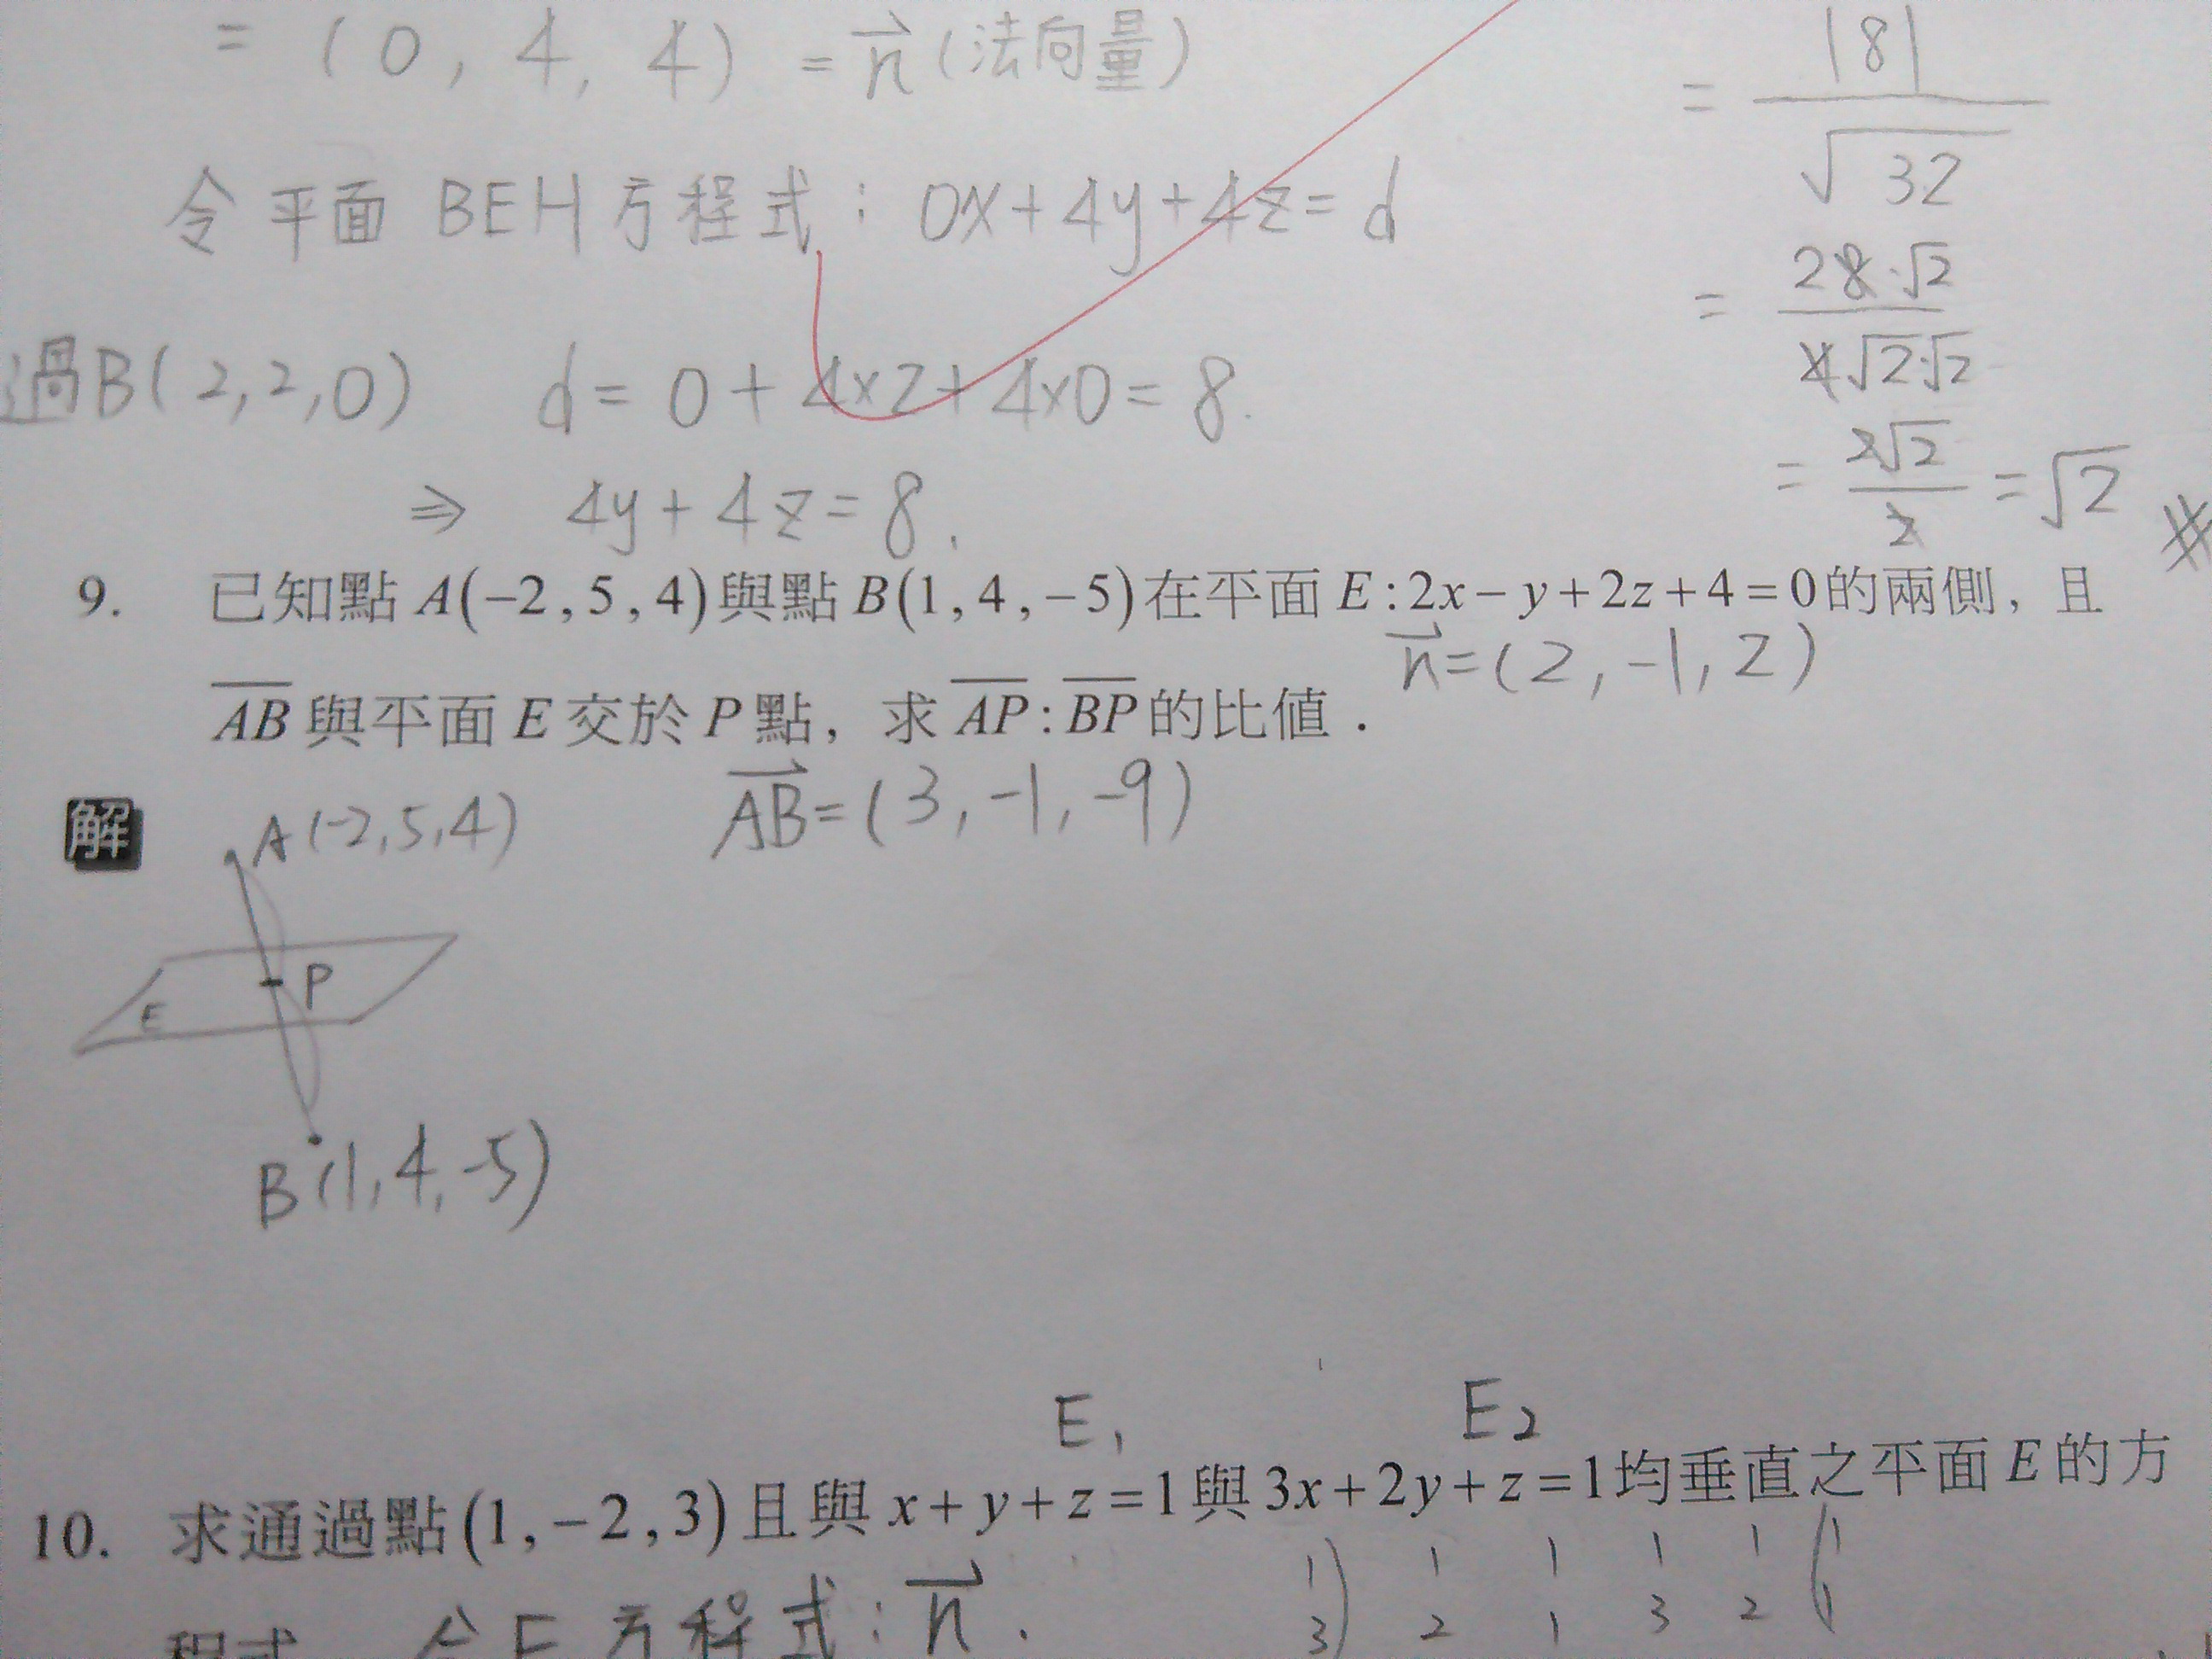 = (0, 4, 4) = n⃗ (法向量)
令平面 BEH 方程式: 0x+4y+4z=d
過B(2,2,0) d = 0 + 4×2 + 4×0 = 8.
⇒ 4y+4z=8.
= |8| / √32
= 28·√2 / 4√2·√2
= 2√2 / 2 = √2 #
9. 已知點 A(−2,5,4)與點 B(1,4,−5)在平面 E:2x−y+2z+4=0的兩側，且
n⃗=(2,-1,2)
AB 與平面 E 交於 P 點，求 AP:BP 的比值．
解
A(-2,5,4)
AB⃗=(3,-1,-9)
P
E
B(1,4,-5)
E₁ E₂
10. 求通過點(1,−2,3)且與 x+y+z=1與3x+2y+z=1均垂直之平面 E 的方
1) 1 1 1 1 (1
程式 令E方程式: n⃗.
3) 2 1 3 2 (1